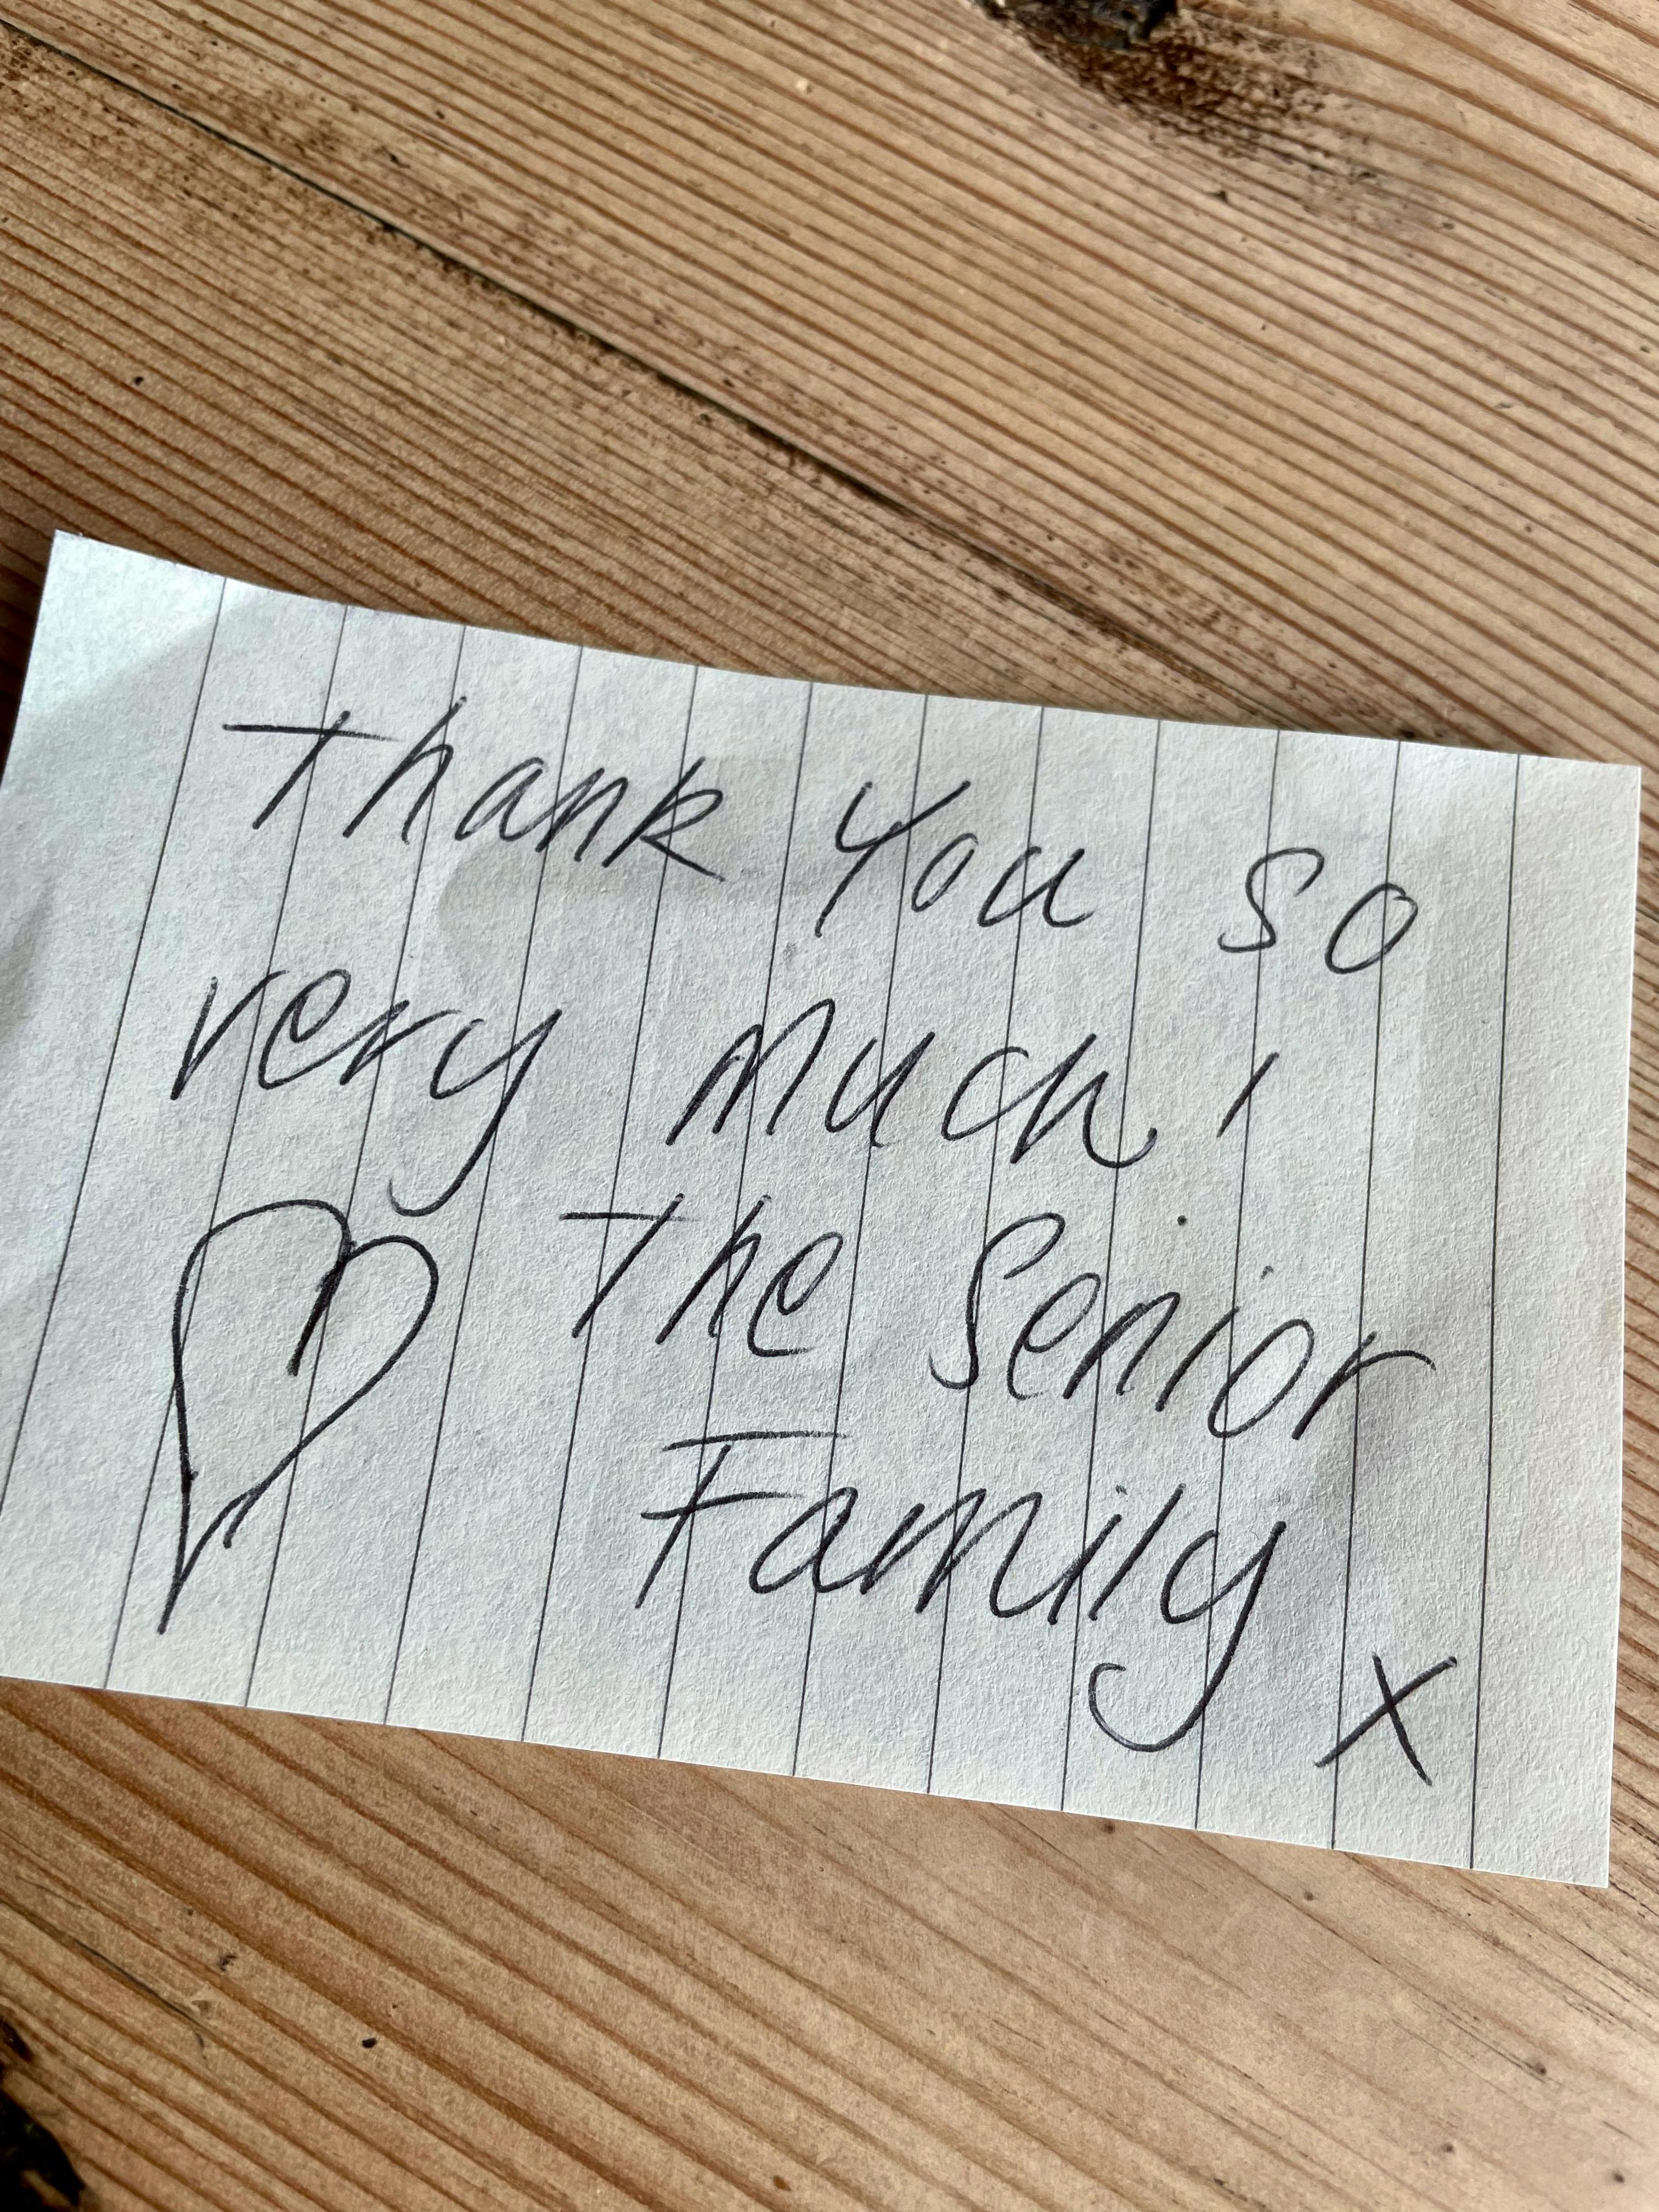 Thank you so
very much!
The Senior
Family
x